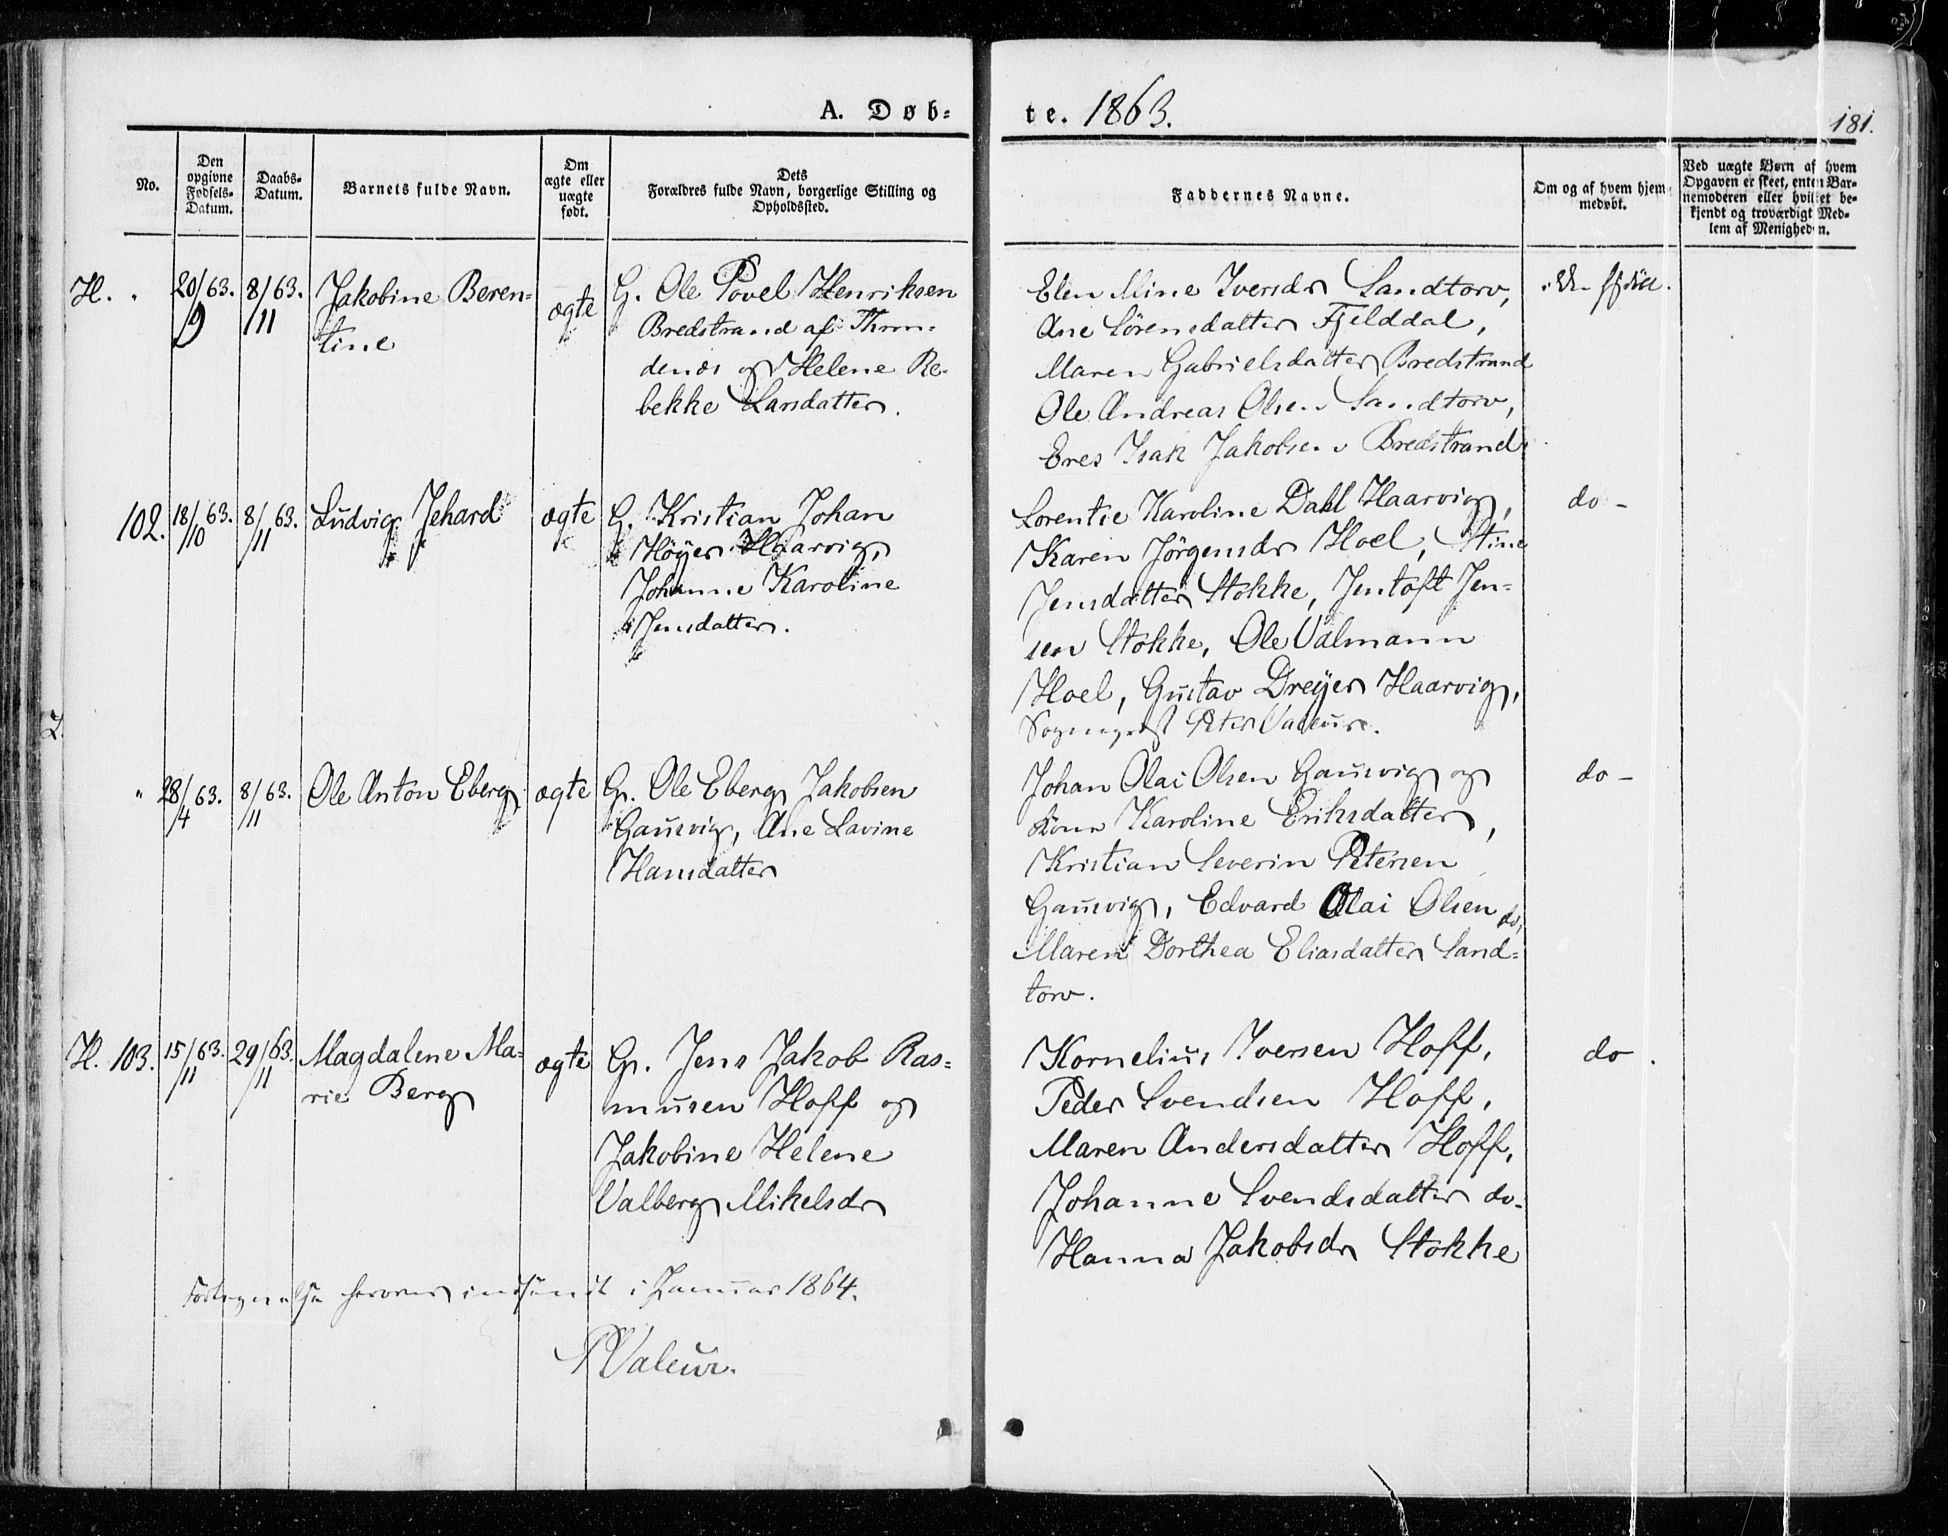 A. Døb=
te. 1863.
181.
No.
Den opgivne Fødsels-Datum.
Daabs-Datum.
Barnets fulde Navn.
Om ægte eller uægte født.
Dets
Forældres fulde Navn, borgerlige Stilling og
Opholdssted.
Faddernes Navne.
Om og af hvem hjem-
medøbt.
Ved uægte Børn af hvem
Opgaven er skeet, enten Bar-
nemoderen eller hvilket be-
kjendt og troværdigt Med-
lem af Menigheden.
H. " 20/9 63. 8/11 63. Jakobine Beren-
tine
ægte
G. Ole Povel Henriksen
Bredstrand af Thron-
denæs og Helene Re-
bekke Larsdatter.
Elen Mine Iversdr Sandtorv,
Ane Sörensdatter Fjelddal,
Maren Gabrielsdatter Bredstrand
Ole Andreas Olsen Sandtorv,
Eres Isak Jakobsen Bredstrand.
102. 18/10 63. 8/11 63. Ludvig Jehard
ægte
G. Kristian Johan
Höyer Haarvig,
Johanne Karoline
Jensdatter.
Lorentie Karoline Dahl Haarvig,
Karen Jörgensdr Hoel, Stine
Jensdatter Stokke, Jentoft Jen-
sen Stokke, Ole Valmann
Hoel, Gustav Dreyer Haarvig,
Sogneprest Peter Valeur.
do -
" 28/4 63. 8/11 63. Ole Anton Eberg
ægte
G. Ole Eberg Jakobsen
Gausvig, Ane Lavine
Hansdatter
Johan Olai Olsen Gausvig og
Kone Karoline Eriksdatter,
Kristian Severin Petersen
Gausvig, Edvard Olai Olsen do,
Maren Dorthea Eliasdatter Sand-
torv.
do -
H. 103. 15/11 63. 29/11 63. Magdalene Ma-
rie Berg
ægte
G. Jens Jakob Ras-
musen Hoff og
Jakobine Helene
Valberg Mikelsdr
Kornelius Iversen Hoff,
Peder Svendsen Hoff,
Maren Andersdatter Hoff,
Johanne Svendsdatter do.
Hanna Jakobsdr Stokke
do.
Fortegnelse herover indsendt i Januar 1864.
PValeur.